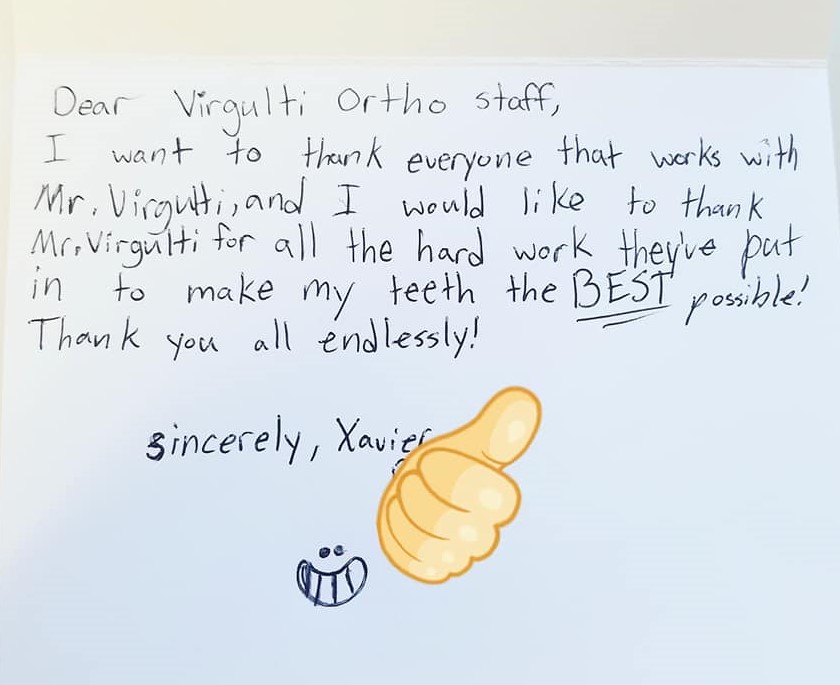 Dear Virgulti Ortho staff,
I want to thank everyone that works with
Mr. Virgulti, and I would like to thank
Mr. Virgulti for all the hard work they've put
in to make my teeth the BEST possible!
Thank you all endlessly!
sincerely, Xavier